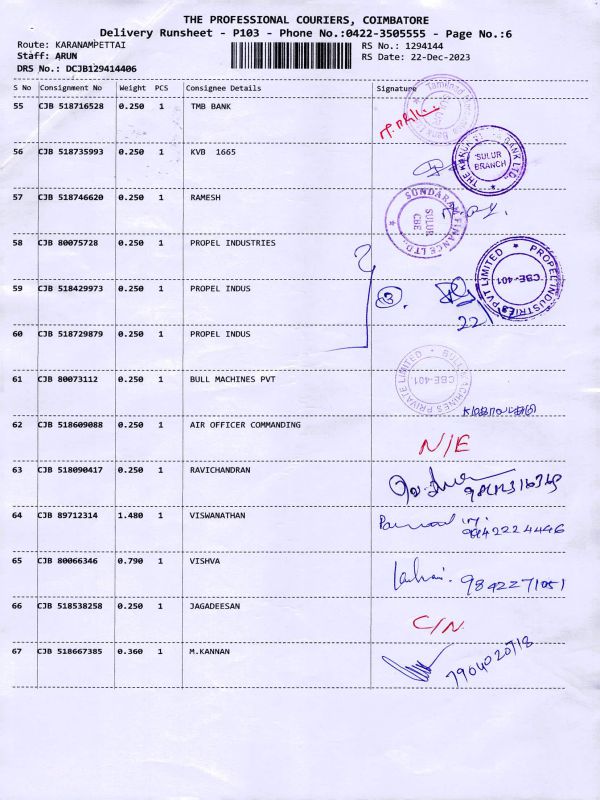 THE PROFESSIONAL COURIERS, COIMBATORE
Delivery Runsheet - P103 - Phone No.:0422-3505555 - Page No.:6
Route: KARANAMPETTAI RS No.: 1294144
Staff: ARUN RS Date: 22-Dec-2023
DRS No.: DCJB129414406
S No Consignment No Weight PCS Consignee Details Signature
55 CJB 518716528 0.250 1 TMB BANK
56 CJB 518735993 0.250 1 KVB 1665
SULUR
BRANCH
57 CJB 518746620 0.250 1 RAMESH
SUNDARAM FINANCE LTD.,
SULUR
CBE
58 CJB 80075728 0.250 1 PROPEL INDUSTRIES
PROPEL INDUSTRIES PVT LIMITED
CBE-401
59 CJB 518429973 0.250 1 PROPEL INDUS
3
22/
60 CJB 518729879 0.250 1 PROPEL INDUS
61 CJB 80073112 0.250 1 BULL MACHINES PVT
BULL MACHINES PRIVATE LIMITED
CBE-401
62 CJB 518609088 0.250 1 AIR OFFICER COMMANDING N/E
63 CJB 518090417 0.250 1 RAVICHANDRAN
64 CJB 89712314 1.480 1 VISWANATHAN
9842224446
65 CJB 80066346 0.790 1 VISHVA 9842271051
66 CJB 518538258 0.250 1 JAGADEESAN C/N
67 CJB 518667385 0.360 1 M.KANNAN 7904020718